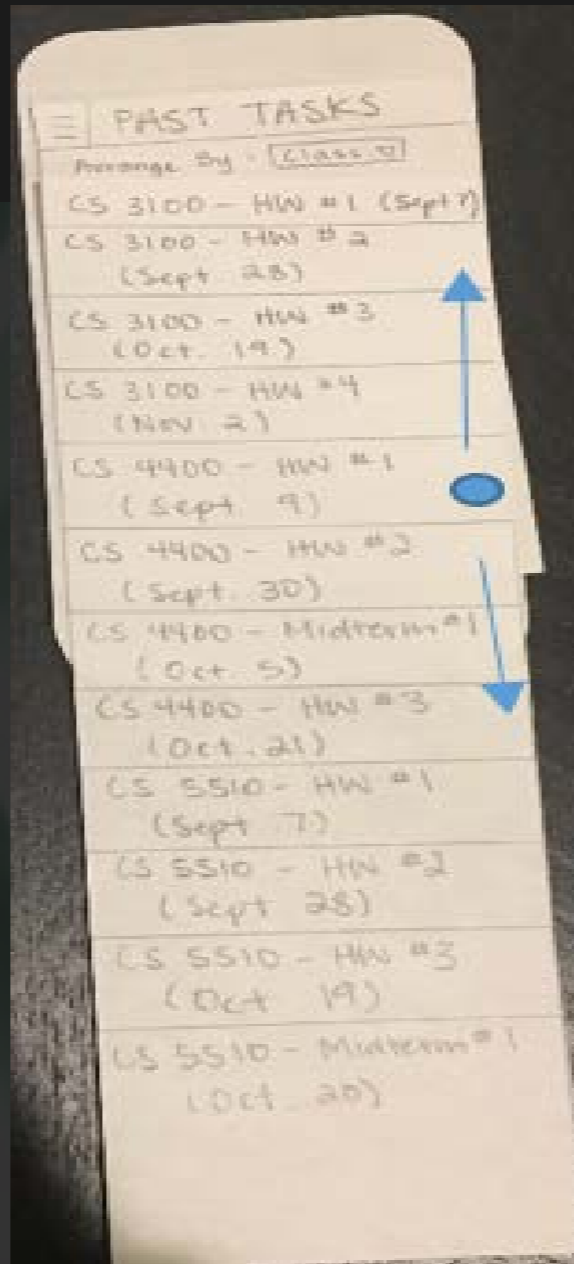 PAST TASKS
Arrange By - Class
CS 3100 - HW #1 (Sept 7)
CS 3100 - HW #2
(Sept 28)
CS 3100 - HW #3
(Oct. 19)
CS 3100 - HW #4
(Nov. 2)
CS 4400 - HW #1
(Sept. 9)
CS 4400 - HW #2
(Sept. 30)
CS 4400 - Midterm #1
(Oct. 5)
CS 4400 - HW #3
(Oct. 21)
CS 5510 - HW #1
(Sept 7)
CS 5510 - HW #2
(Sept 28)
CS 5510 - HW #3
(Oct 19)
CS 5510 - Midterm #1
(Oct. 20)